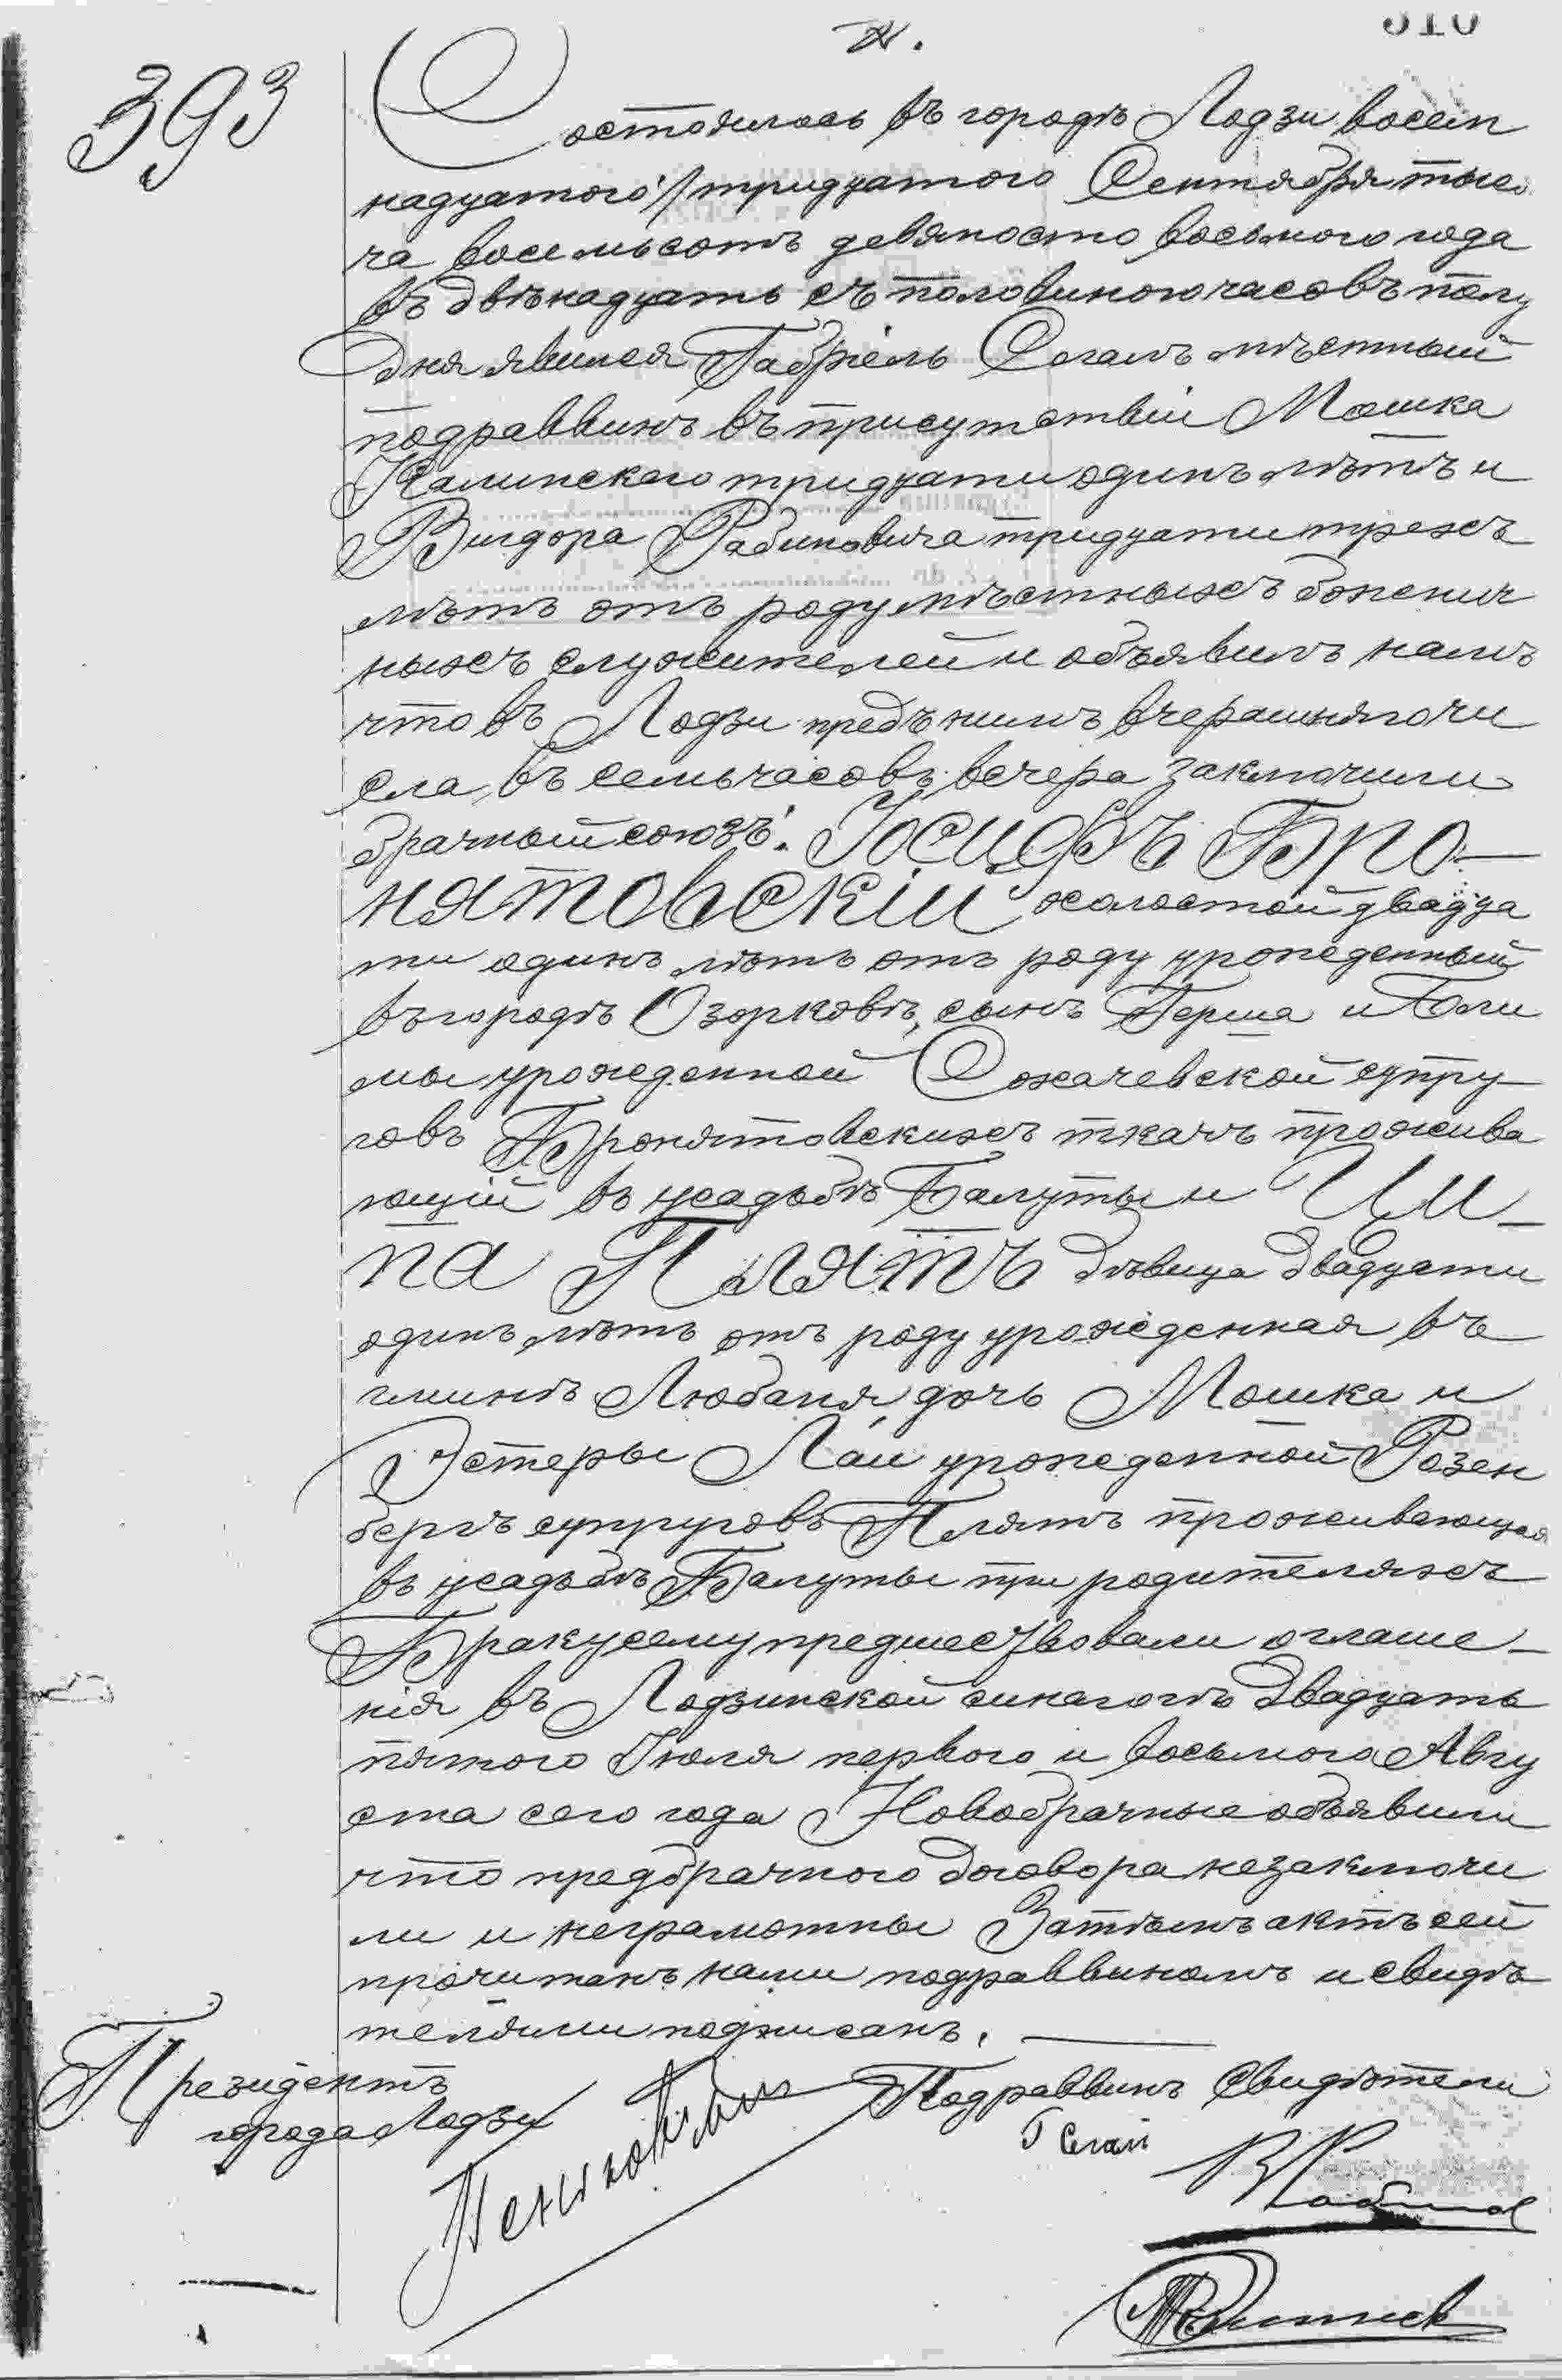 393
Состоялось въ городѣ Лодзи восем
надцатого/тридцатого Сентября тыся
ча восемьсотъ девяносто восьмого года
въ двѣнадцать съ половиною часовъ полу
дня явился Габріель Сегалъ мѣстный
подраввинъ въ присутствіи Мошка
Калинскаго тридцати одинъ лѣтъ и
Вигдора Рабиновича тридцати трехъ
лѣтъ отъ роду мѣстныхъ боженич
ныхъ служителей и объявилъ намъ
что въ Лодзи предъ нимъ вчерашняго чи
сла, въ семь часовъ вечера заключили
брачный союзъ: Іосифъ Бро-
нятовскій холостой двадца
ти одинъ лѣтъ отъ роду урожденный
въ городѣ Озорковѣ, сынъ Герша и
мы урожденной Сохачевской супру
говъ Бронятовскихъ ткачъ прожива
ющій въ усадьбѣ Балуты и Ци-
па Плятъ дѣвица двадцати
одинъ лѣтъ отъ роду урожденная въ
гминѣ Любаня дочь Мошка и
Эстеры Лаи урожденной Розен
бергъ супруговъ Плятъ проживающая
въ усадьбѣ Балуты при родителяхъ
Браку сему предшествовали оглаше-
нія въ Лодзинской синагогѣ двадцать
пятого Іюля первого и восьмого Авгу
ста сего года Новобрачные объявили
что предбрачного договора не заключи
ли и неграмотны Затѣмъ актъ сей
прочитанъ нами подраввиномъ и свидѣ
телями подписанъ.
Президентъ
города Лодзи
Пеньковскій
Подраввинъ Свидѣтели
Г Сегал